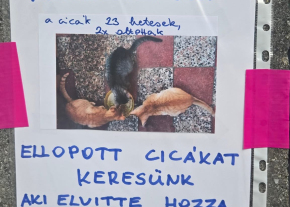 a cicák 23 hetesek,
2x oltottak
ELLOPOTT CICÁKAT
KERESÜNK
AKI ELVITTE HOZZA